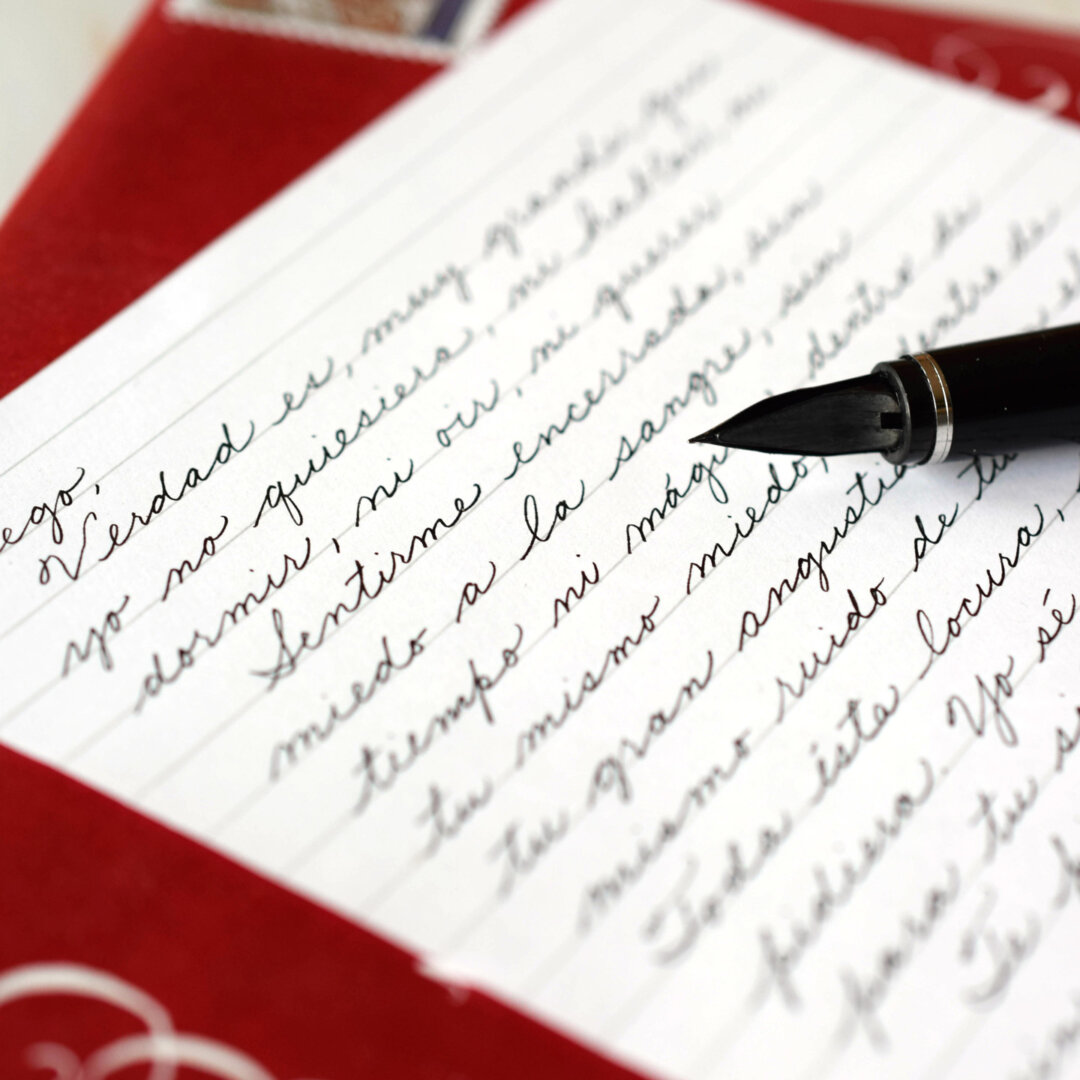 ego,
Verdad es, muy grande, que
yo no quisiera, ni hablar, ni
dormir, ni oir, ni querer
Sentirme encerrada, sin
miedo a la sangre, sin
tiempo ni dentro de
tu mismo miedo, dentro de
tu gran angustia
mismo ruido de tu
Toda ésta locura,
pediera. Yo sé
para tu
Te